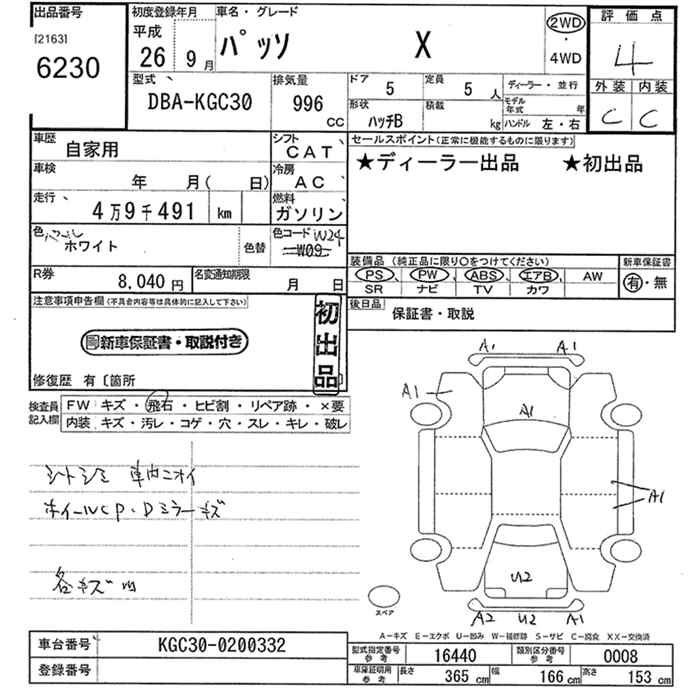 出品番号 初度登録年月 車名・グレード 評価点
[2163] 平成 26 9月 パッソ X 2WD ・ 4WD 4
6230
型式 排気量 ドア 5 定員 5人 ディーラー・並行 外装 内装
DBA-KGC30 996 CC 形状 ハッチB 積載 kg モデル年式 年 ハンドル 左・右 C C
車歴 自家用 シフト CAT セールスポイント(正常に機能するものに限ります)
車検 年 月( 日) 冷房 AC ★ディーラー出品 ★初出品
走行 4万9千491 km 燃料 ガソリン
色 パール ホワイト 色替 色コード W24 W09
装備品(純正品に限り○をつけてください) 新車保証書
PS PW ABS エアB AW 有・無
SR ナビ TV カワ
R券 8,040円 名変通知期限 月 日
後日品 保証書・取説
注意事項申告欄(不具合内容等は具体的に記入して下さい) 初出品
新車保証書・取説付き
修復歴 有〔箇所 〕
検査員記入欄 FW キズ・飛石・ヒビ割・リペア跡・×要
内装 キズ・汚レ・コゲ・穴・スレ・キレ・破レ
シートシミ 車内ニオイ
ホイールCP・Dミラーキズ
各キズ凹
A1 A1
A1
A1
A1
U2
A2 U2 A1
スペア
A-キズ E-エクボ U-凹み W-補修跡 S-サビ C-腐食 XX-交換済
車台番号 KGC30-0200332
登録番号
型式指定番号 参考 16440 類別区分番号 参考 0008
車庫証明用 参考 長さ 365 cm 幅 166 cm 高さ 153 cm